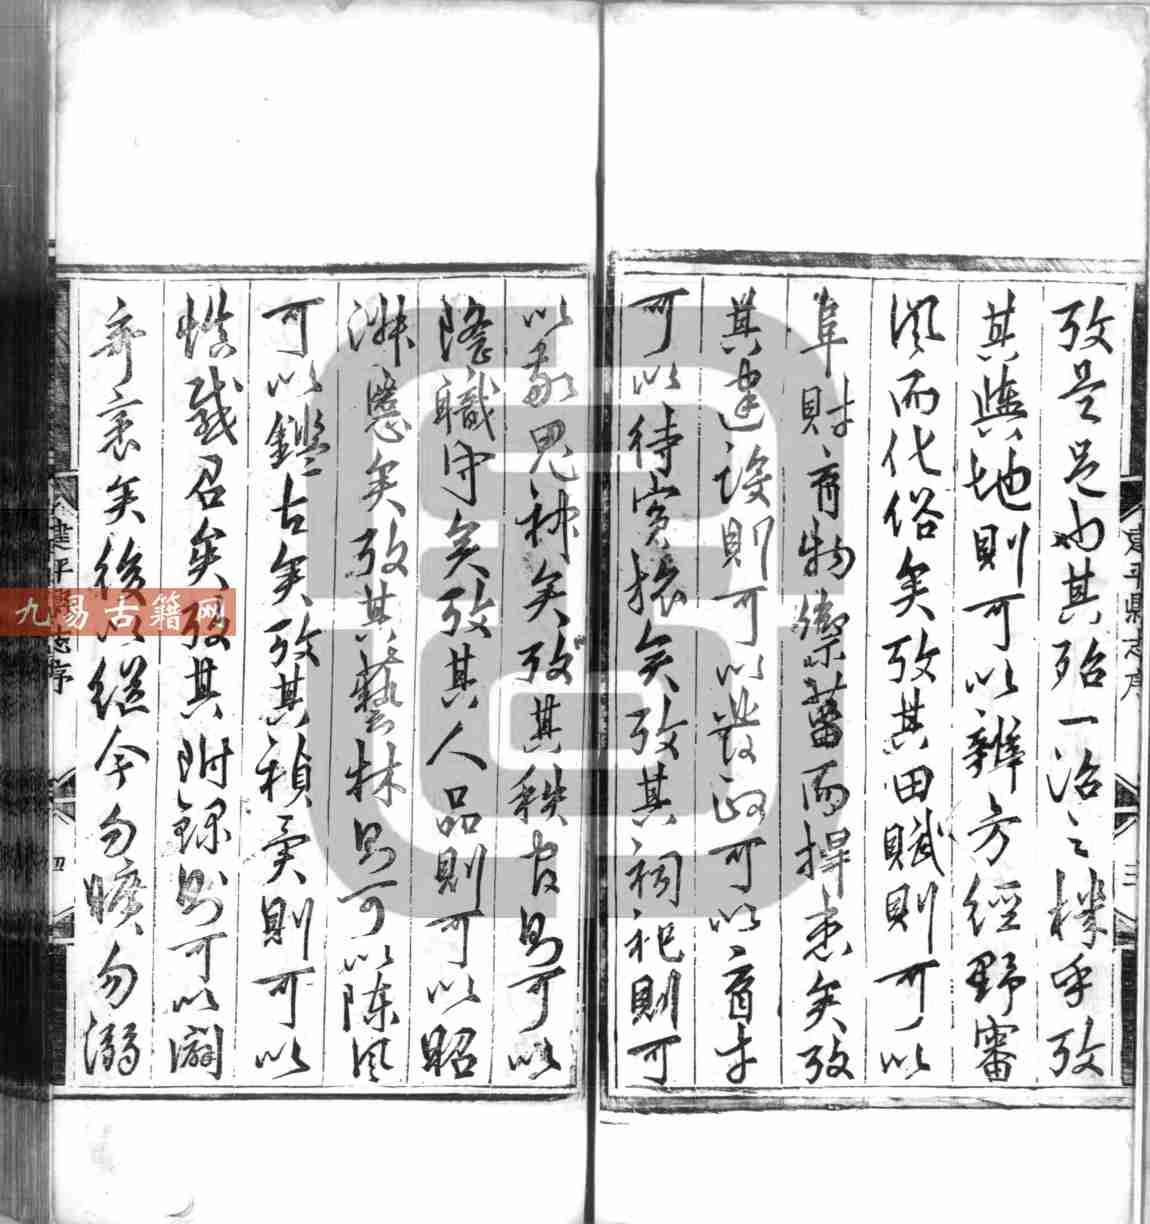 攷是足也其殆一治之機乎攷
其輿地則可以辨方經野審
風而化俗矣攷其田賦則可以
阜財育物禦菑而捍患矣攷
其建設則可以證政可以育才
可以待寇振矣攷其祠祀則可
以敬鬼神矣攷其秩官則可以
蔭職守矣攷其人品則可以昭
淑慝矣攷其藝林則可以陳風
可以鑑古矣攷其禎異則可以
慎感召矣攷其附錄則可以闢
奇衺矣後以繼今勿曠勿溺
建平縣志序
三
建平縣志序
四
九易古籍网